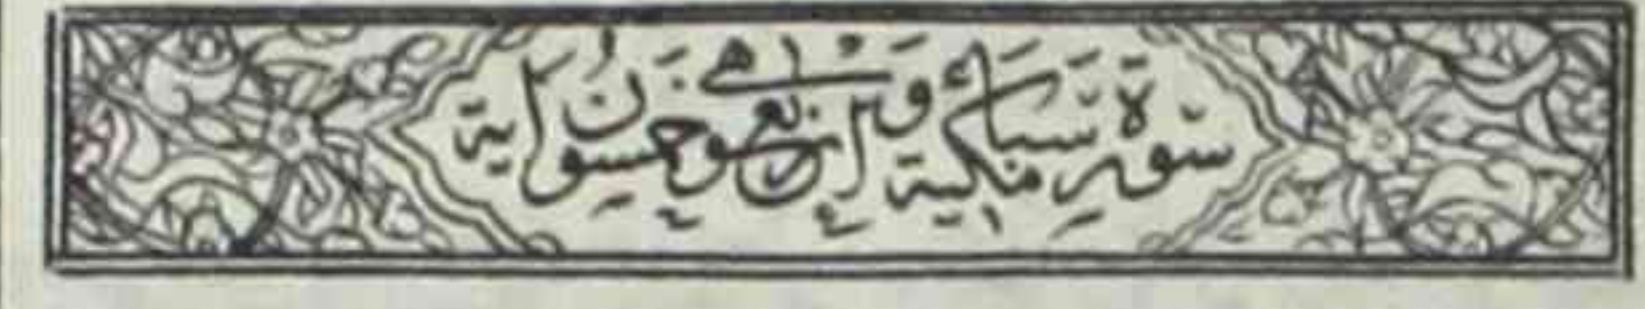 سورة سبأ مكية وهي أربع وخمسون آية